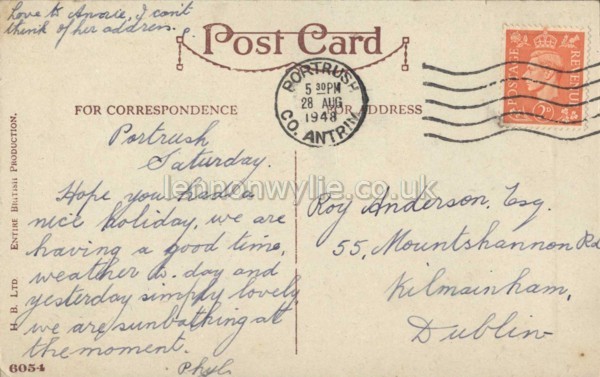 Love to Annie, I can't
think of her address. P.
Post Card
PORTRUSH
5 30PM
28 AUG
1948
CO. ANTRIM
POSTAGE
REVENUE
2D
FOR CORRESPONDENCE
FOR ADDRESS
Portrush
Saturday.
Hope you had a
nice holiday, we are
having a good time,
weather to-day and
yesterday simply lovely
we are sunbathing at
the moment.
Phyl.
lennonwylie.co.uk
Roy Anderson, Esq.
55, Mountshannon Rd
Kilmainham,
Dublin
H. B. LTD. ENTIRE BRITISH PRODUCTION.
6054